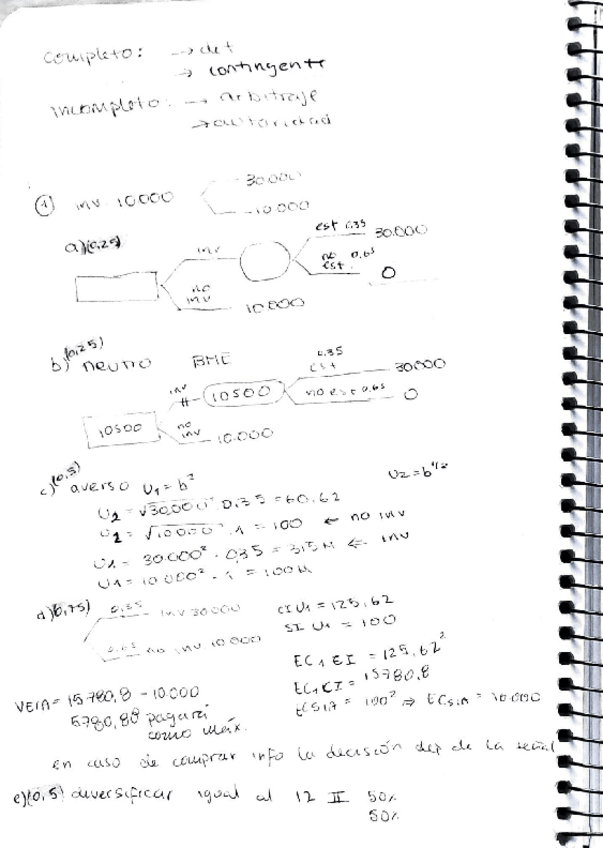 completo: → det
→ contingente
incompleto: → arbitraje
→ autoridad
① inv 10000
30.000
-10.000
a)(0,25)
inv
est 0.35 30.000
no est. 0.65
0
no inv
10.000
b)(0,25) neutro BME
0.35 est
30.000
inv
10500
no est 0.65 0
10500
no inv 10.000
c)(0,5) averso U1 = b² U2 = b^1/2
U2 = √30.000 · 0.35 = 60.62
U2 = √10.000 · 1 = 100 ← no inv
U1 = 30.000² · 0,35 = 315M ← inv
U1 = 10.000² · 1 = 100M
d)(0,75) 0,35 inv 30000 CI U1 = 125,62
no inv 10.000 SI U1 = 100
EC1 EI = 125,62²
EC1 CI = 15780,8
ECSIA = 100² ⇒ ECSIA = 10.000
VEIA = 15.780,8 - 10.000
5.780,80 pagará
como máx.
en caso de comprar info la decisión dep de la señal
e)(0,5) diversificar igual al 12 II 50%
50%